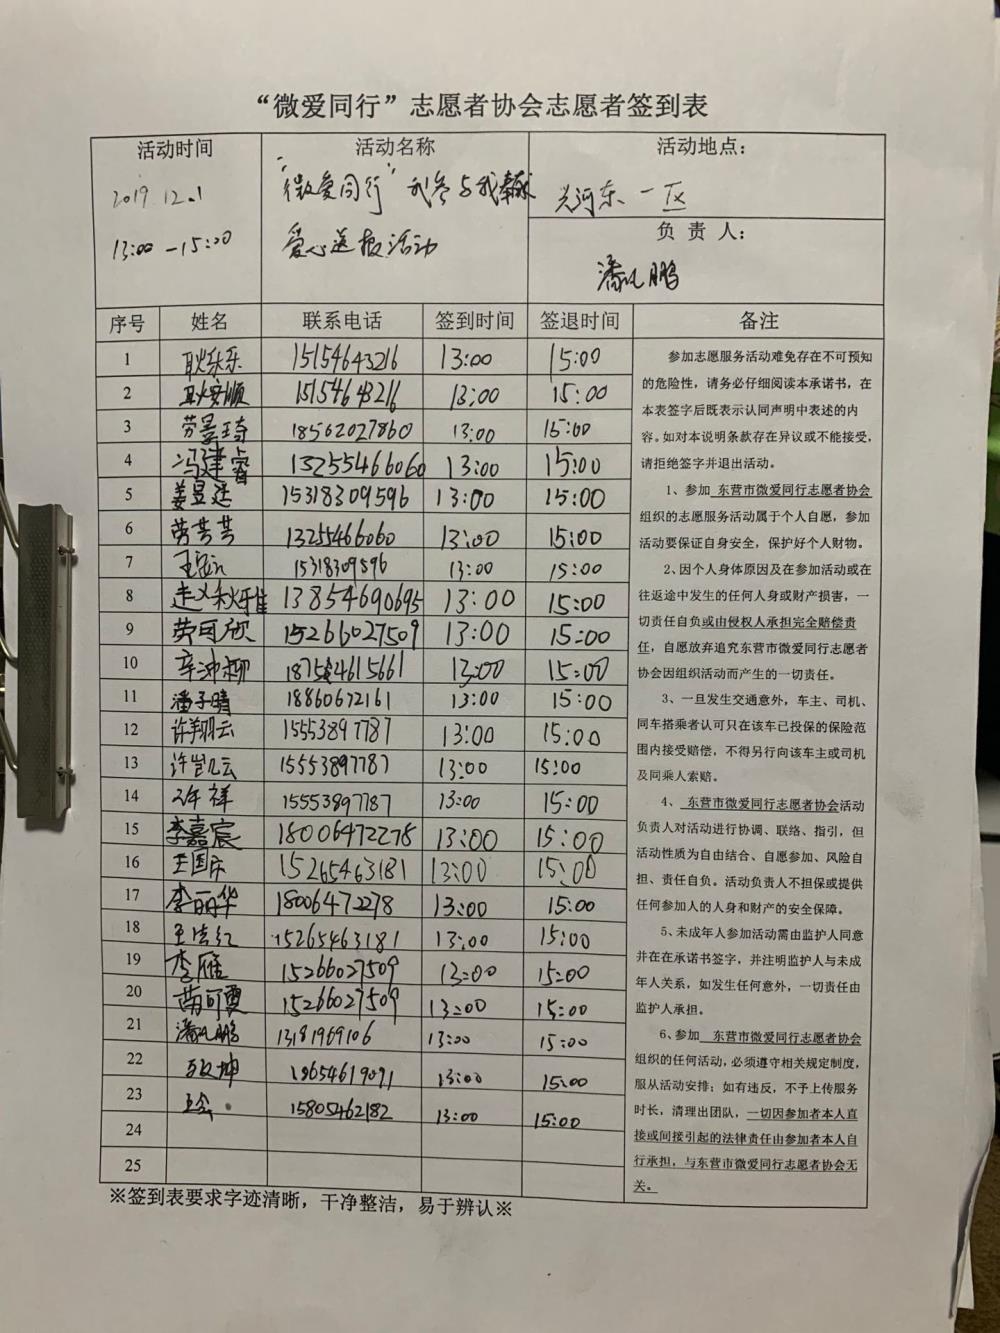 “微爱同行”志愿者协会志愿者签到表
活动时间
2019.12.1
13:00-15:00
活动名称
“微爱同行”我参与我奉献
爱心送报活动
活动地点：
兴河东一区
负责人：
潘 鹏
序号 姓名 联系电话 签到时间 签退时间 备注
1 耿乐乐 15154643216 13:00 15:00
2 耿安顺 15154643216 13:00 15:00
3 劳景琦 18562027860 13:00 15:00
4 冯建睿 13255466060 13:00 15:00
5 姜昱廷 15318309596 13:00 15:00
6 劳芸芸 13255466060 13:00 15:00
7 王 15318309596 13:00 15:00
8 赵 13854690695 13:00 15:00
9 苟可欣 15266027509 13:00 15:00
10 辛冲柳 18754615661 13:00 15:00
11 潘子晴 18860672161 13:00 15:00
12 许翔云 15553897787 13:00 15:00
13 许凯云 15553897787 13:00 15:00
14 祥 15553897787 13:00 15:00
15 李嘉宸 18006472278 13:00 15:00
16 王国庆 15265463181 13:00 15:00
17 李丽华 18006472278 13:00 15:00
18 王洪红 15265463181 13:00 15:00
19 李雁 15266027509 13:00 15:00
20 苟可 15266027509 13:00 15:00
21 潘 鹏 13181969106 13:00 15:00
22 坤 18654619091 13:00 15:00
23 15805462182 13:00 15:00
24
25
参加志愿服务活动难免存在不可预知
的危险性，请务必仔细阅读本承诺书，在
本表签字后既表示认同声明中表述的内
容。如对本说明条款存在异议或不能接受，
请拒绝签字并退出活动。
1、参加 东营市微爱同行志愿者协会
组织的志愿服务活动属于个人自愿，参加
活动要保证自身安全，保护好个人财物。
2、因个人身体原因及在参加活动或在
往返途中发生的任何人身或财产损害，一
切责任自负或由侵权人承担完全赔偿责
任，自愿放弃追究东营市微爱同行志愿者
协会因组织活动而产生的一切责任。
3、一旦发生交通意外，车主、司机、
同车搭乘者认可只在该车已投保的保险范
围内接受赔偿，不得另行向该车主或司机
及同乘人索赔。
4、 东营市微爱同行志愿者协会活动
负责人对活动进行协调、联络、指引，但
活动性质为自由结合、自愿参加、风险自
担、责任自负。活动负责人不担保或提供
任何参加人的人身和财产的安全保障。
5、未成年人参加活动需由监护人同意
并在在承诺书签字，并注明监护人与未成
年人关系，如发生任何意外，一切责任由
监护人承担。
6、参加 东营市微爱同行志愿者协会
组织的任何活动，必须遵守相关规定制度，
服从活动安排；如有违反，不予上传服务
时长，清理出团队，一切因参加者本人直
接或间接引起的法律责任由参加者本人自
行承担，与东营市微爱同行志愿者协会无
关。
※签到表要求字迹清晰，干净整洁，易于辨认※